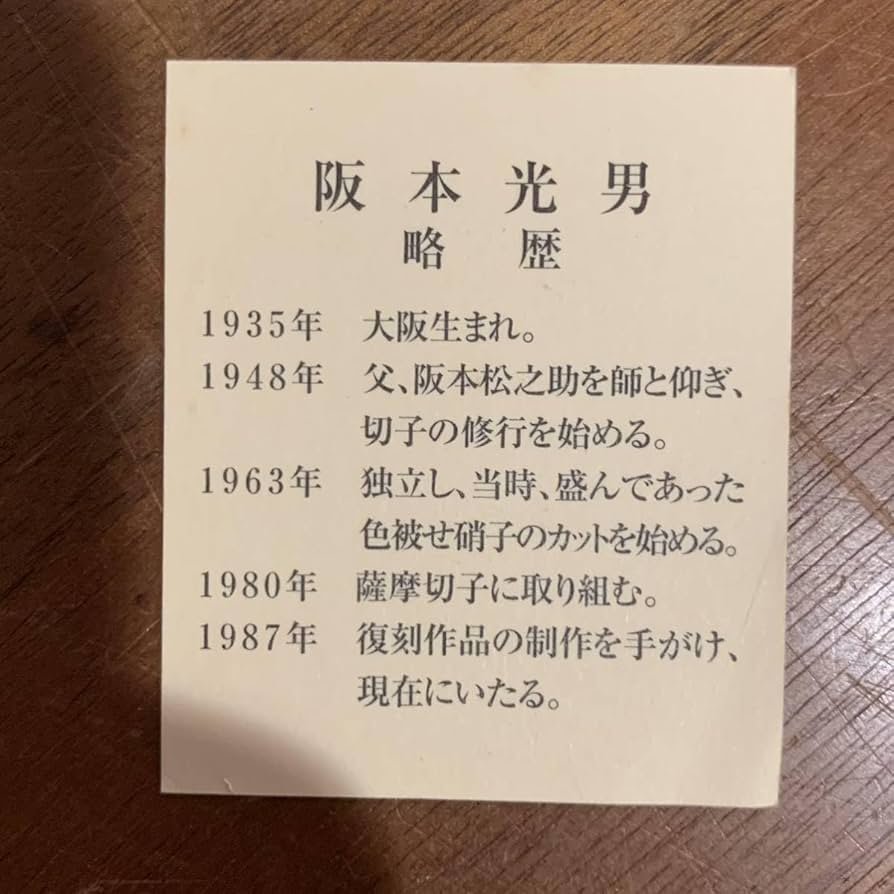 阪本光男
略歴
1935年 大阪生まれ。
1948年 父、阪本松之助を師と仰ぎ、
切子の修行を始める。
1963年 独立し、当時、盛んであった
色被せ硝子のカットを始める。
1980年 薩摩切子に取り組む。
1987年 復刻作品の制作を手がけ、
現在にいたる。